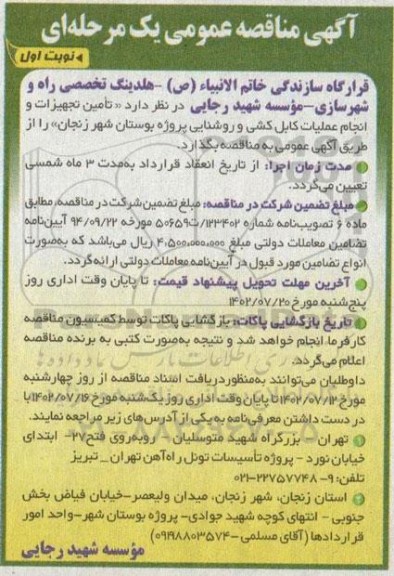 آگهی مناقصه عمومی یک مرحله‌ای
نوبت اول
قرارگاه سازندگی خاتم الانبیاء (ص) -هلدینگ تخصصی راه و
شهرسازی-مؤسسه شهید رجایی در نظر دارد «تأمین تجهیزات و
انجام عملیات کابل کشی و روشنایی پروژه بوستان شهر زنجان» را از
طریق آگهی عمومی به مناقصه بگذارد.
مدت زمان اجرا: از تاریخ انعقاد قرارداد به‌مدت ۳ ماه شمسی
تعیین می‌گردد.
مبلغ تضمین شرکت در مناقصه: مبلغ تضمین شرکت در مناقصه، مطابق
ماده ۶ تصویب‌نامه شماره ۱۲۳۴۰۲/ت۵۰۶۵۹ مورخه ۹۴/۰۹/۲۲ آیین‌نامه
تضامین معاملات دولتی مبلغ ۴،۵۰۰،۰۰۰،۰۰۰ ریال می‌باشد که به‌صورت
انواع تضامین مورد قبول در آیین‌نامه معاملات دولتی ارائه گردد.
آخرین مهلت تحویل پیشنهاد قیمت: تا پایان وقت اداری روز
پنج‌شنبه مورخ ۱۴۰۲/۰۷/۲۰
تاریخ بازگشایی پاکات: بازگشایی پاکات توسط کمیسیون مناقصه
کارفرما انجام خواهد شد و نتیجه به‌صورت کتبی به برنده مناقصه
اعلام می‌گردد.
داوطلبان می‌توانند به‌منظور دریافت اسناد مناقصه از روز چهارشنبه
مورخ ۱۴۰۲/۰۷/۱۲ تا پایان وقت اداری روز یک‌شنبه مورخ ۱۴۰۲/۰۷/۱۶ با
در دست داشتن معرفی‌نامه به یکی از آدرس‌های زیر مراجعه نمایند.
تهران - بزرگراه شهید متوسلیان - روبه‌روی فتح۲۷- ابتدای
خیابان نورد - پروژه تأسیسات تونل راه‌آهن تهران _ تبریز
تلفن: ۹-۲۲۷۵۷۷۴۸-۰۲۱
استان زنجان، شهر زنجان، میدان ولیعصر-خیابان فیاض بخش
جنوبی - انتهای کوچه شهید جوادی- پروژه بوستان شهر-واحد امور
قراردادها (آقای مسلمی -۰۹۱۹۸۸۰۳۵۷۴)
مؤسسه شهید رجایی